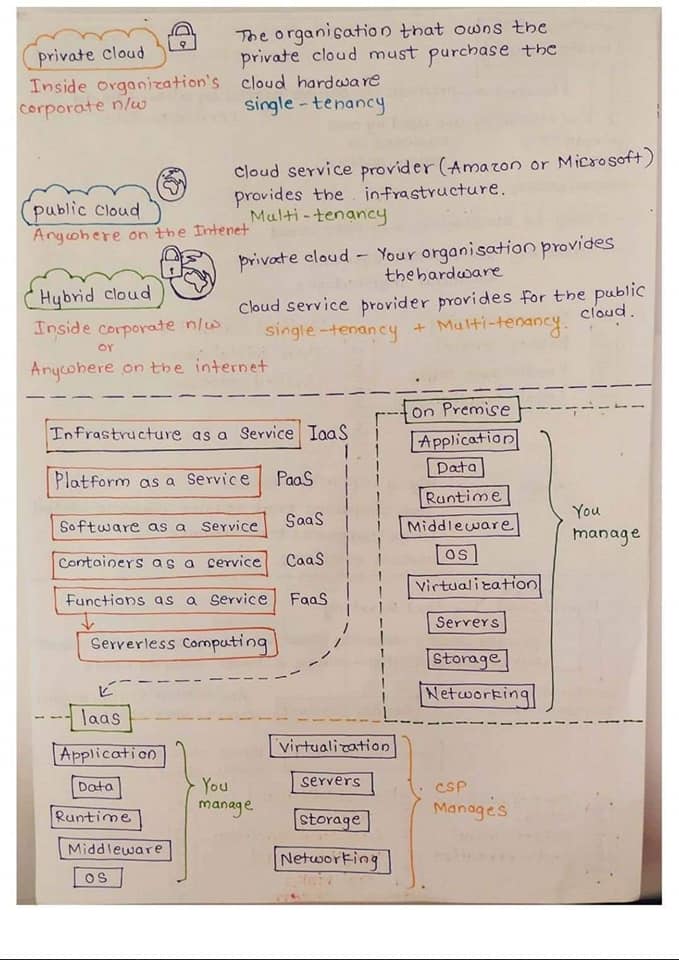 private cloud
Inside organization's
corporate n/w
The organisation that owns the
private cloud must purchase the
cloud hardware
single-tenancy
public cloud
Anywhere on the Intenet
cloud service provider (Amazon or Microsoft)
provides the infrastructure.
Multi-tenancy
Hybrid cloud
Inside corporate n/w
or
Anywhere on the internet
private cloud - Your organisation provides
the hardware
Cloud service provider provides for the public
cloud.
single-tenancy + Multi-tenancy.
Infrastructure as a Service IaaS
Platform as a Service PaaS
Software as a Service SaaS
Containers as a service CaaS
Functions as a Service FaaS
Serverless Computing
On Premise
Application
Data
Runtime
Middleware
OS
Virtualization
Servers
Storage
Networking
You
manage
Iaas
Application
Data
Runtime
Middleware
OS
You
manage
Virtualization
servers
Storage
Networking
CSP
Manages